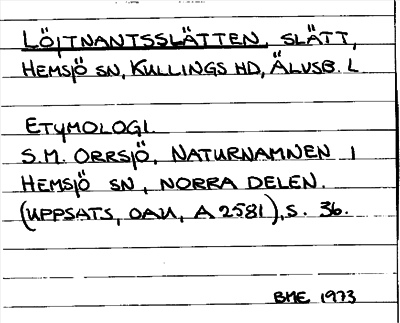 LÖJTNANTSSLÄTTEN, SLÄTT,
HEMSJÖ SN, KULLINGS HD, ÄLVSB. L
ETYMOLOGI.
S.M. ORRSJÖ, NATURNAMNEN I
HEMSJÖ SN, NORRA DELEN.
(UPPSATS, OAU, A 2581), S. 36.
BME 1973